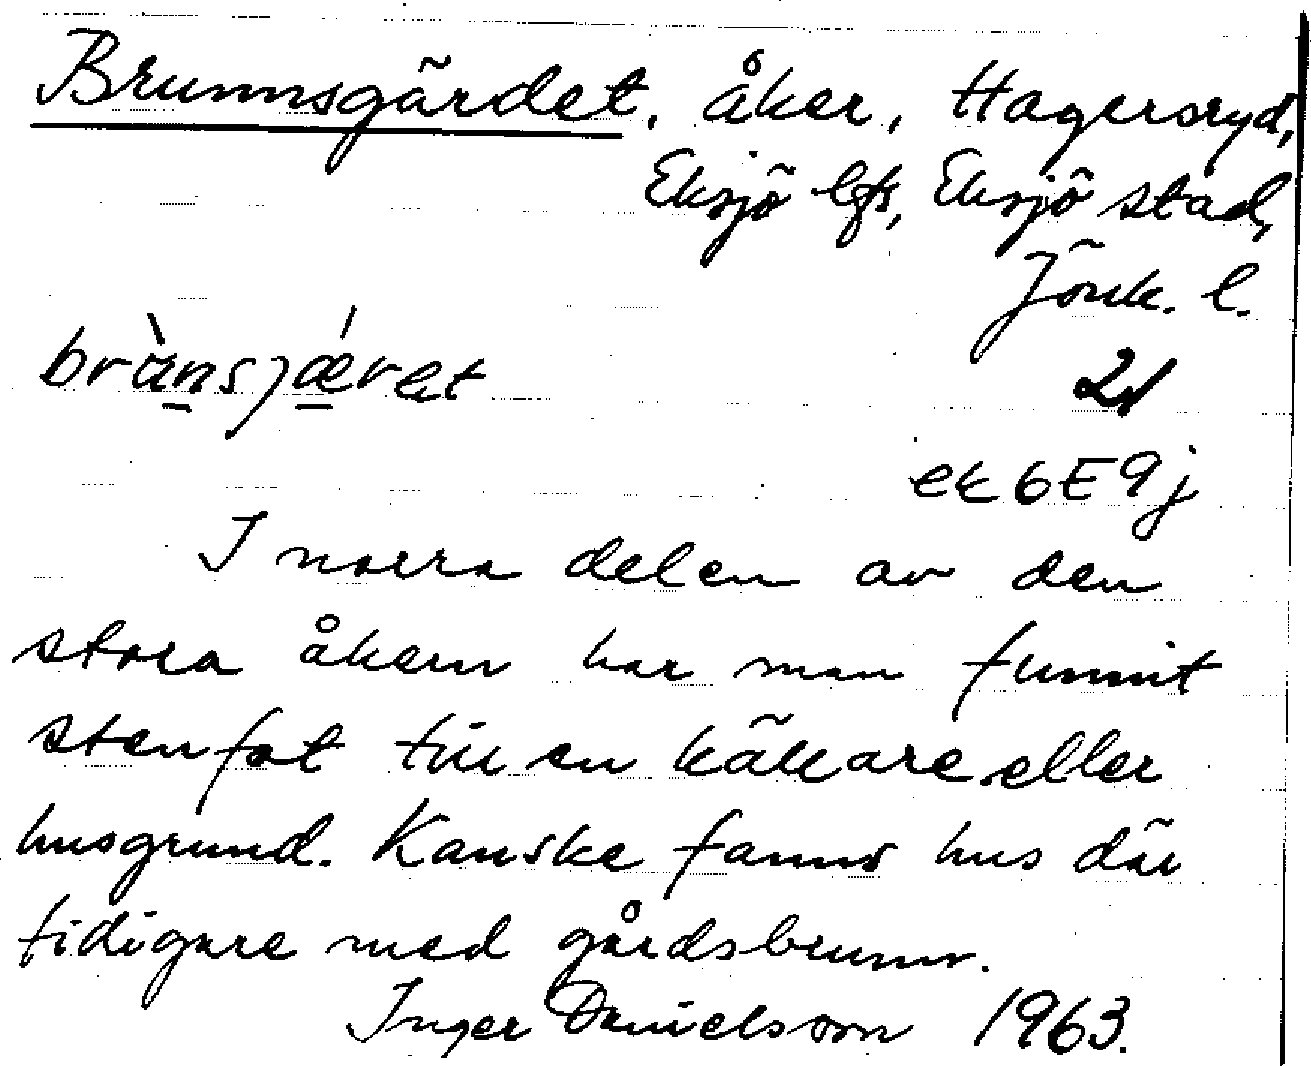 Brunnsgärdet, åker, Hagersryd,
Eksjö lfs, Eksjö stad,
Jönk. l.
21
ek 6E9j
I norra delen av den
stora åkern har man funnit
stenfot till en källare eller
husgrund. Kanske fanns hus där
tidigare med gårdsbrunn.
Inger Danielsson 1963.